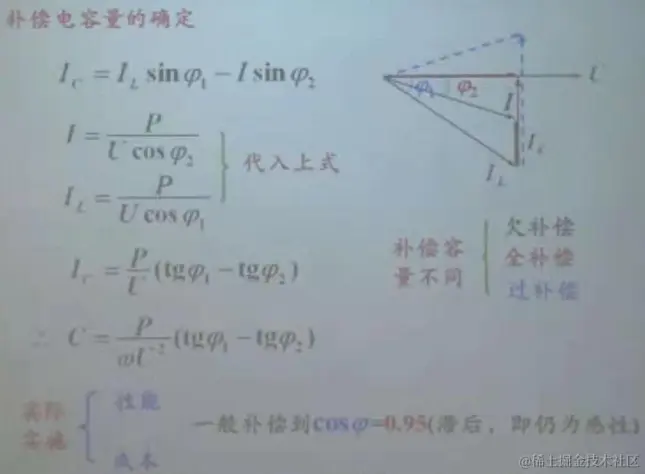 补偿电容量的确定
I_C = I_L sinφ₁ − I sinφ₂
I = P / (U cosφ₂)
代入上式
I_L = P / (U cosφ₁)
I_C = P/U (tgφ₁ − tgφ₂)
∴ C = P/(ωU²) (tgφ₁ − tgφ₂)
φ₁ φ₂ U
I
I_C
I_L
补偿容量不同
欠补偿
全补偿
过补偿
实际实施
性能
成本
一般补偿到cosφ=0.95(滞后，即仍为感性)
@稀土掘金技术社区